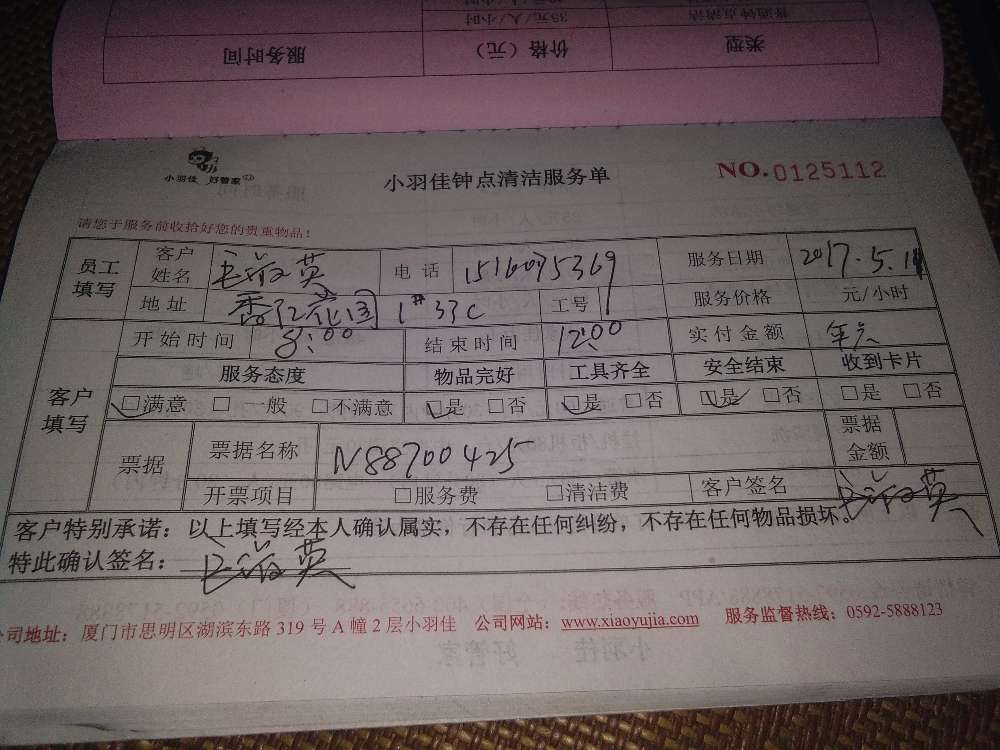 服务时间 价格（元） 类型
35元/人/小时 普通钟点清洁
小羽佳 好管家
小羽佳钟点清洁服务单
NO.0125112
请您于服务前收拾好您的贵重物品！
员工填写 客户姓名 电话 服务日期 2017.5.14
地址 香江花园 1# 33C 工号 服务价格 元/小时
客户填写 开始时间 8:00 结束时间 12:00 实付金额 年卡
服务态度 物品完好 工具齐全 安全结束 收到卡片
□满意 □一般 □不满意 □是 □否 □是 □否 □是 □否 □是 □否
票据 票据名称 N88700425 票据金额
开票项目 □服务费 □清洁费 客户签名
客户特别承诺：以上填写经本人确认属实，不存在任何纠纷，不存在任何物品损坏。
特此确认签名：
公司地址：厦门市思明区湖滨东路 319 号 A 幢 2 层小羽佳 公司网站：www.xiaoyujia.com 服务监督热线：0592-5888123